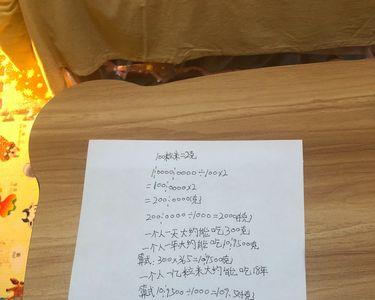 100粒米=2克
1¦0000¦0000÷100×2
=100¦0000×2
=200¦0000(克)
200¦0000÷1000=2000(千克)
一个人一天大约能吃300克
一个人一年大约能吃10¦9500克
算式:300×365=10¦9500克
一个人一亿粒米大约能吃18年
算式10¦9500÷1000=109.5(千克)